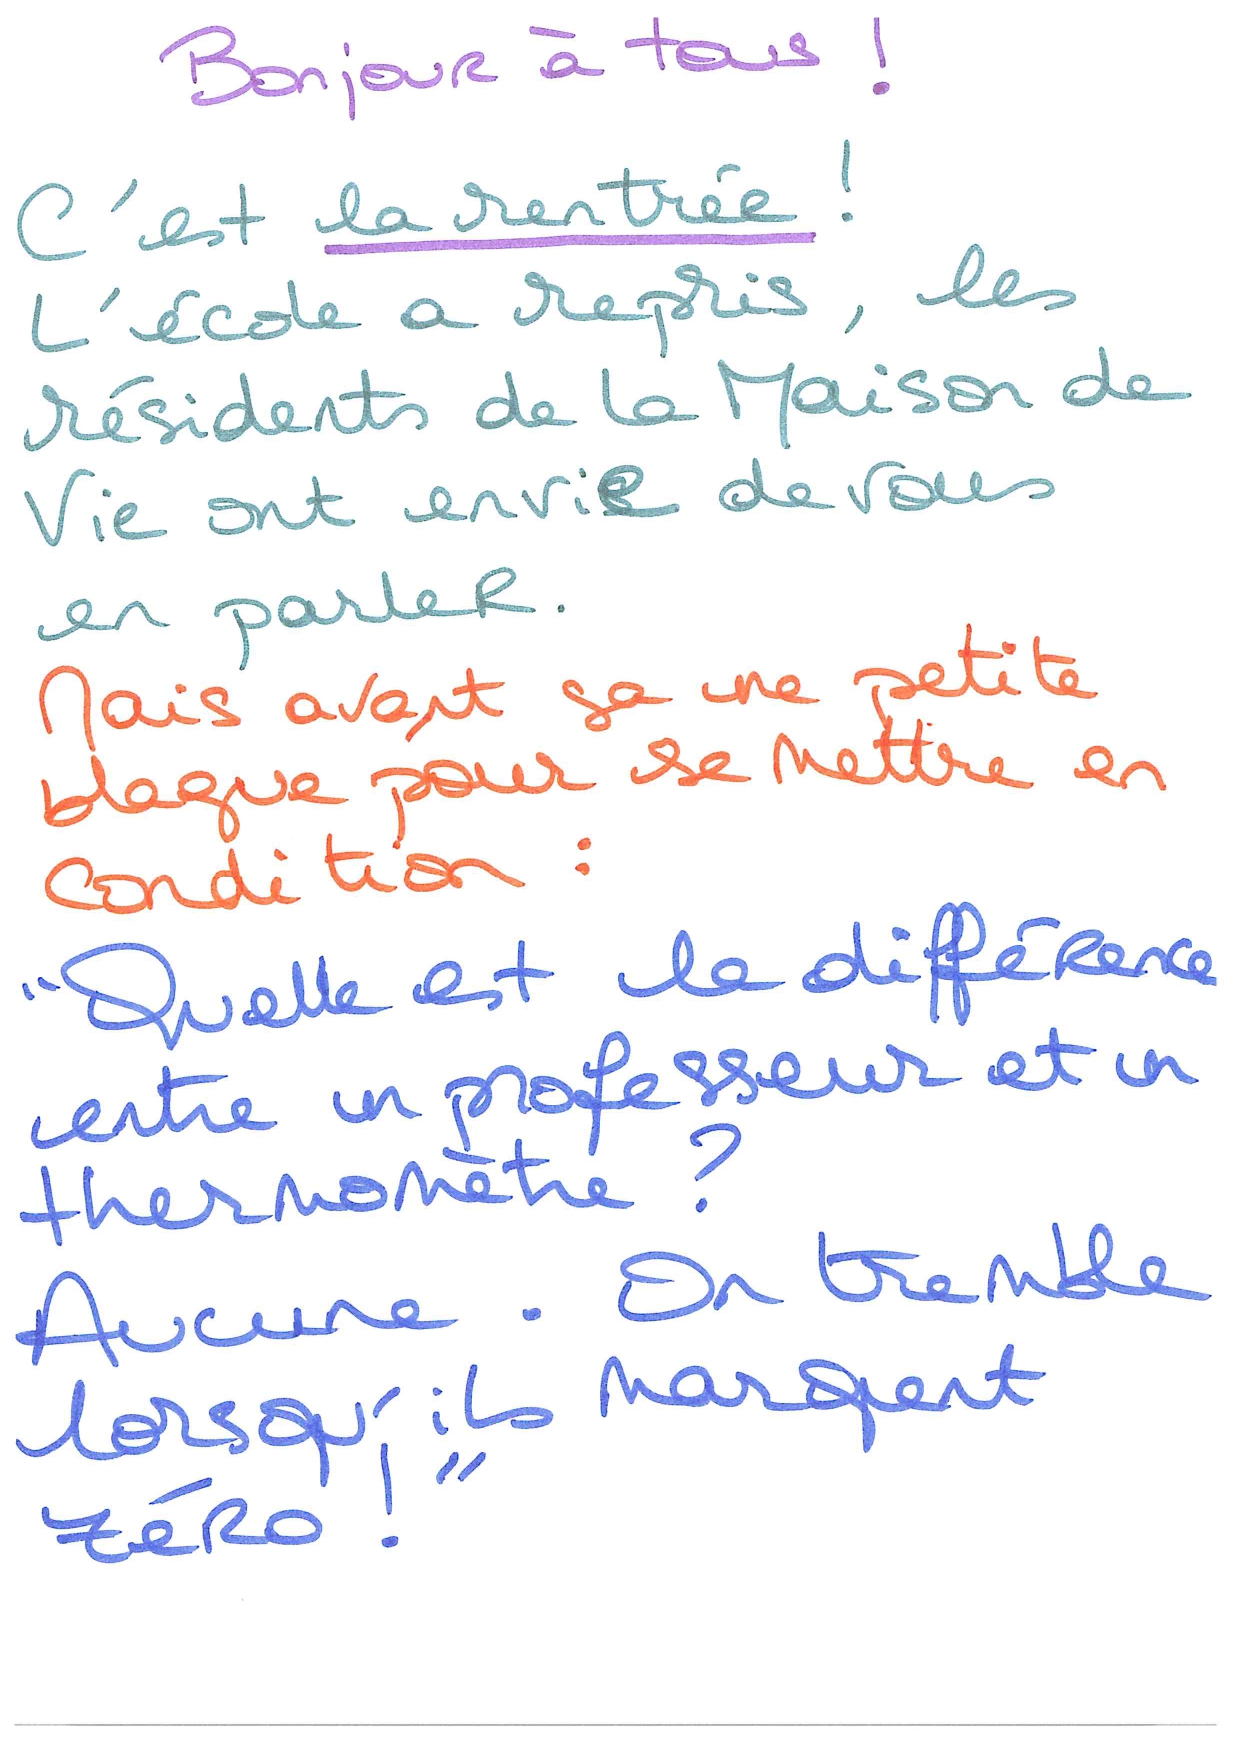 Bonjour à tous !
C'est la rentrée !
L'école a repris, les
résidents de la Maison de
Vie ont envie de vous
en parler.
Mais avant ça une petite
blague pour se mettre en
condition :
"Quelle est la différence
entre un professeur et un
thermomètre ?
Aucune. On tremble
lorsqu'ils marquent
zéro !"